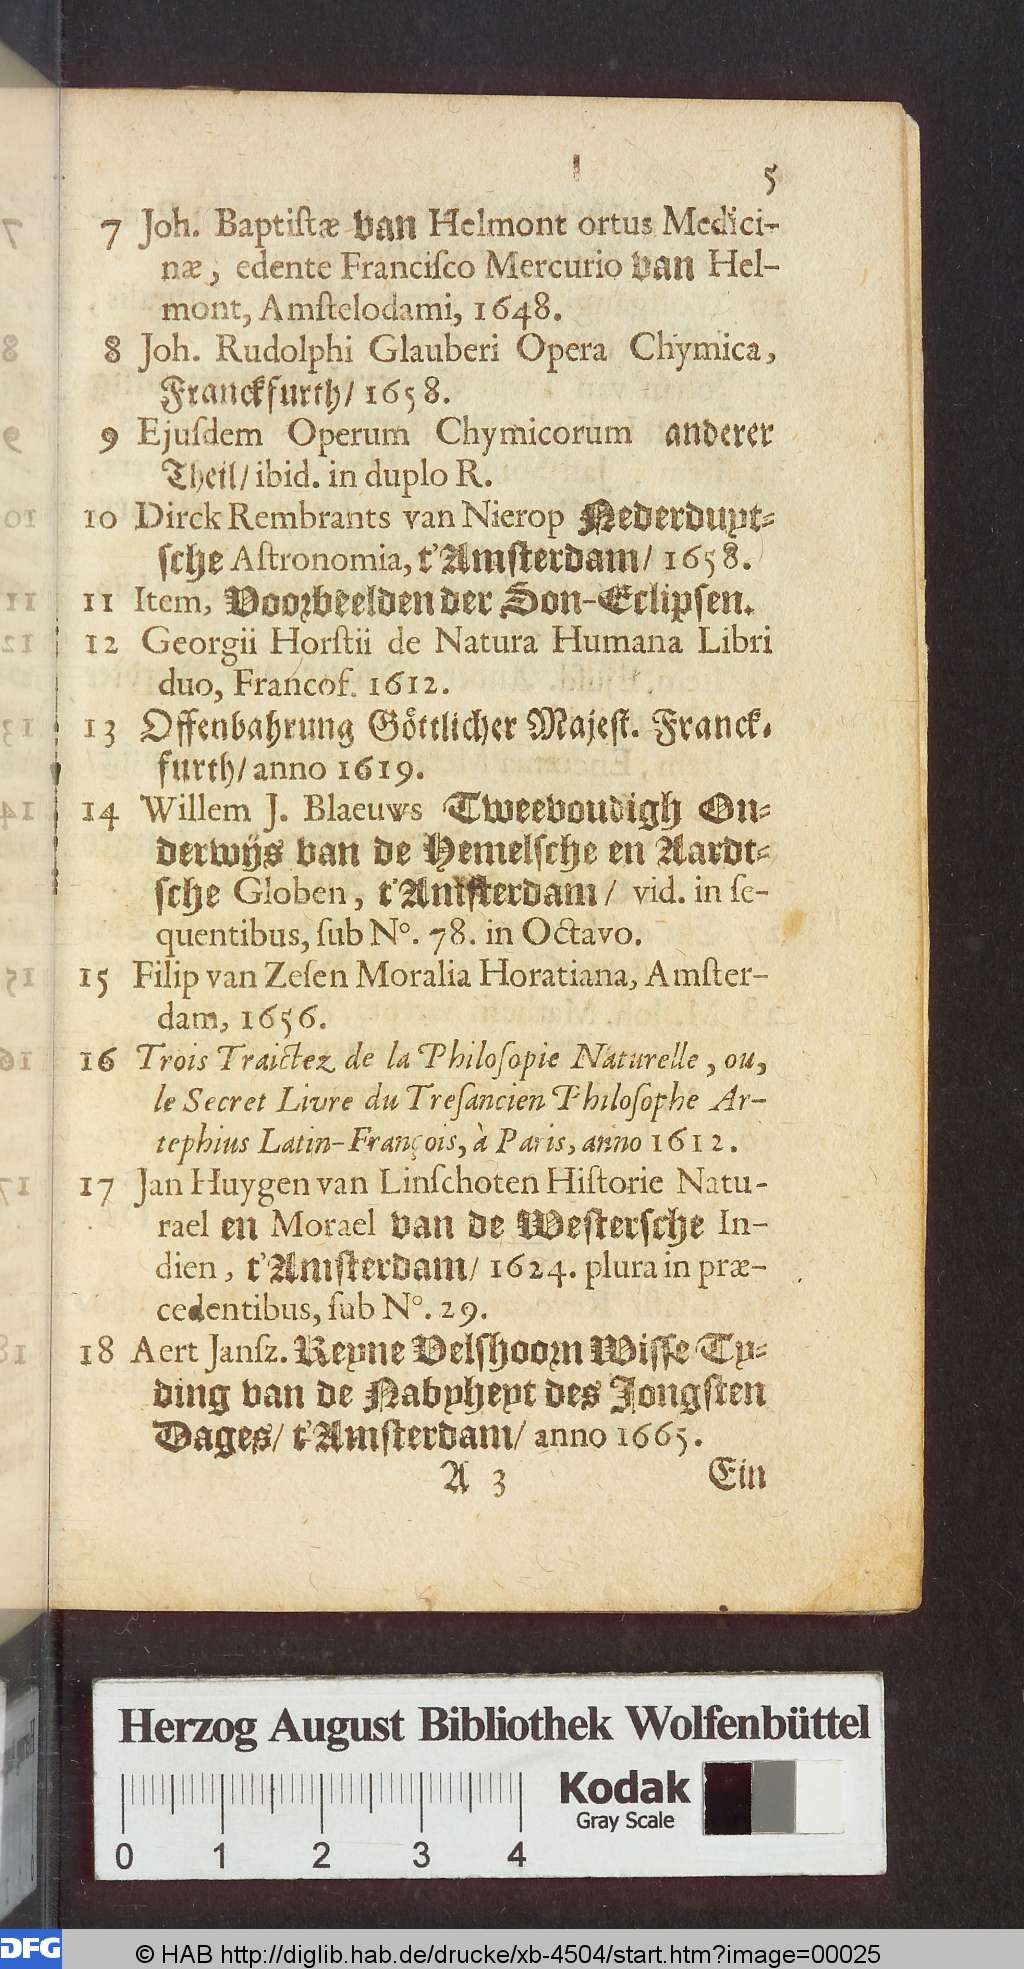 5
7 Joh. Baptiſtæ van Helmont ortus Medici-
næ, edente Franciſco Mercurio van Hel-
mont, Amſtelodami, 1648.
8 Joh. Rudolphi Glauberi Opera Chymica,
Franckfurth/ 1658.
9 Ejuſdem Operum Chymicorum anderer
Theil/ ibid. in duplo R.
10 Dirck Rembrants van Nierop Nederduyt-
ſche Aſtronomia, t'Amſterdam/ 1658.
11 Item, Voorbeelden der Son-Eclipſen.
12 Georgii Horſtii de Natura Humana Libri
duo, Francof. 1612.
13 Offenbahrung Göttlicher Majeſt. Franck-
furth/ anno 1619.
14 Willem J. Blaeuws Tweevoudigh On-
derwijs van de Hemelſche en Aardt-
ſche Globen, t'Amſterdam/ vid. in ſe-
quentibus, ſub N°. 78. in Octavo.
15 Filip van Zeſen Moralia Horatiana, Amſter-
dam, 1656.
16 Trois Traictez de la Philoſopie Naturelle, ou,
le Secret Livre du Treſancien Philoſophe Ar-
tephius Latin-François, à Paris, anno 1612.
17 Jan Huygen van Linſchoten Hiſtorie Natu-
rael en Morael van de Weſterſche In-
dien, t'Amſterdam/ 1624. plura in præ-
cedentibus, ſub N°. 29.
18 Aert Janſz. Reyne Velshoorn Wiſſe Ty-
ding van de Nabyheyt des Jongſten
Dages/ t'Amſterdam/ anno 1665.
A 3 Ein
Herzog August Bibliothek Wolfenbüttel
Kodak
Gray Scale
0 1 2 3 4
DFG © HAB http://diglib.hab.de/drucke/xb-4504/start.htm?image=00025